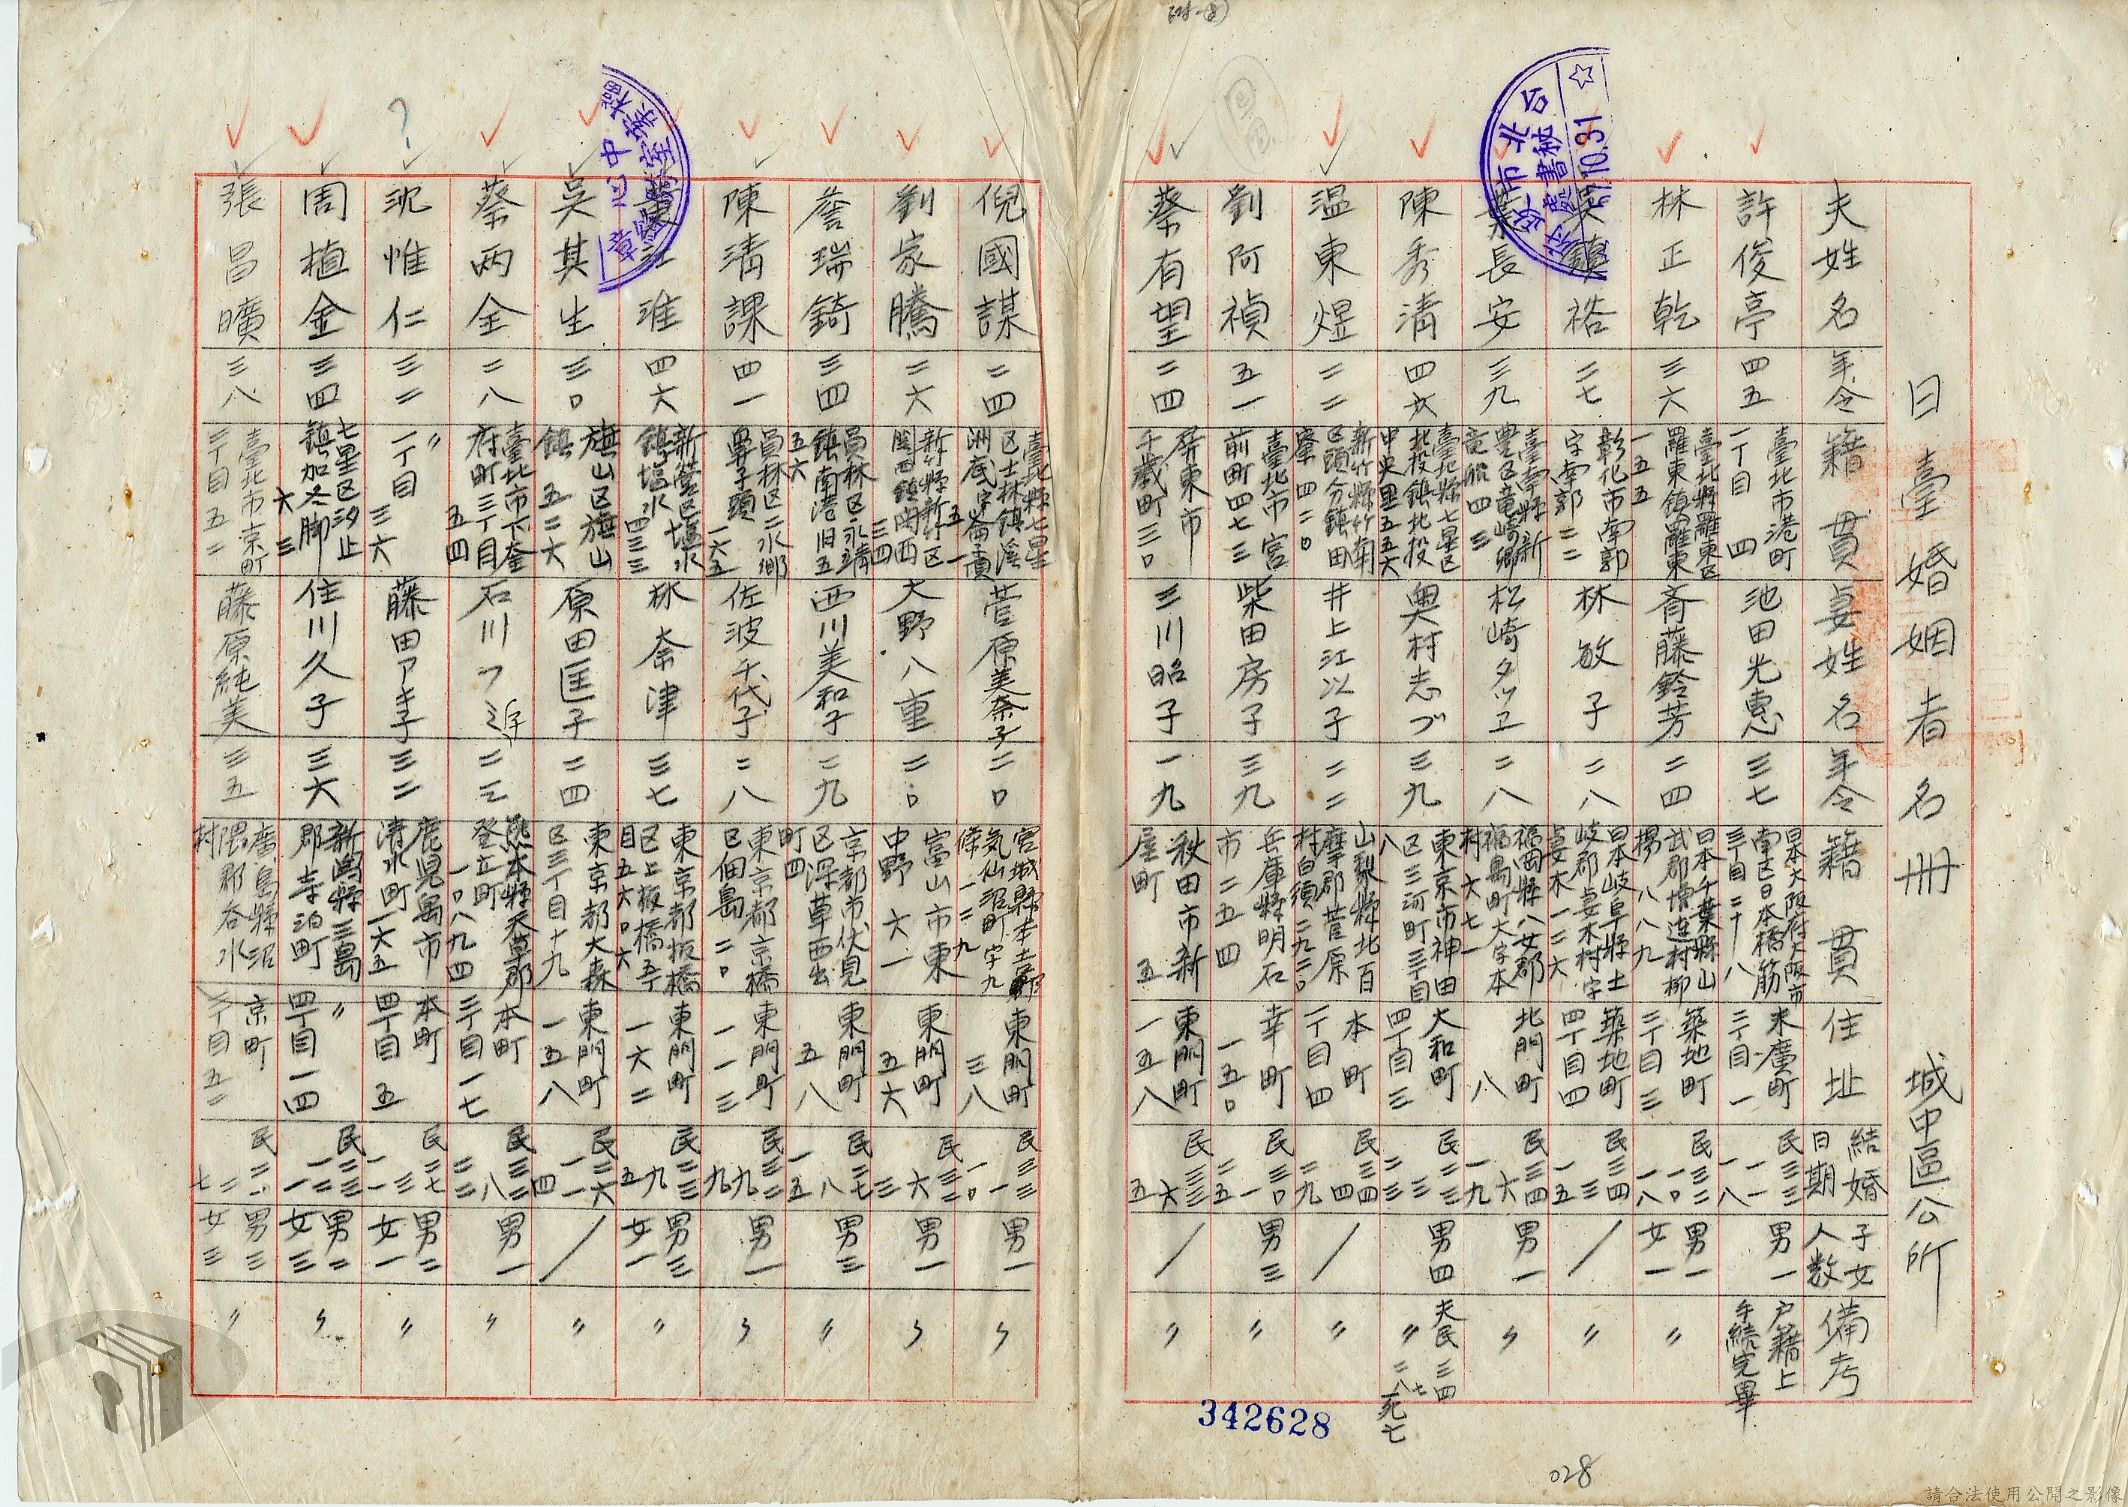 日臺婚姻者名冊 城中區公所
夫姓名 年令 籍貫 妻姓名 年令 籍貫 住址 結婚日期 子女人数 備考
許俊亭 四五 臺北市港町二丁目四 池田光惠 三七 日本大阪府大阪市南区日本橋筋三丁目二十八 末廣町三丁目一 民三三 一一 一八 男一 户籍上手続完畢
林正乾 三六 臺北縣羅東区羅東鎮羅東一五五 斉藤鈴芳 二四 日本千葉縣山武郡増 村 八八九 築地町三丁目三 民三二 一〇 一八 男一女一 〃
鎮裕 二七 彰化市南郭字南郭二二 林敏子 二八 日本岐阜縣土岐郡妻木村字妻木一二六 築地町四丁目四 民三四 三 一五 / 〃
葉長安 三九 臺南縣新豊区竜崎郷竜船四三 松崎タツヱ 二八 福岡縣八女郡福島町大字本村六七一 北門町八 民三四 六 一九 男一 〃
陳秀清 四女 臺北縣七星区北投鎮北投中央里五五六 奥村志づ 三九 東京市神田区三河町三丁目八 大和町四丁目三 民二三 三 二三 男四 〃 夫民三四 七 二八死亡
温東煜 二二 新竹縣竹南区頭分鎮田寮四二〇 井上江以子 二二 山梨縣北百摩郡菅原村白須二九二〇 本町二丁目四 民三四 四 二九 / 〃
劉阿禎 五一 臺北市宮前町四七三 柴田房子 三九 兵庫縣明石市二五四 幸町一五〇 民三〇 一 二五 男三 〃
蔡有望 二四 屏東市千歳町三〇 三川昭子 一九 秋田市新屋町五 東門町一五八 民三三 六 五 / 〃
倪國謀 二四 臺北縣七星区士林鎮溪洲底字崙貢五一 菅原美奈子 二〇 宮城縣本吉郡気仙沼町字九條一二九 東門町三八 民三三 一 一〇 男一 〃
劉家騰 二六 新竹縣新竹区関西鎮関西三四 大野八重 二〇 富山市東中野六一 東門町五六 民三二 六 三 男一 〃
詹瑞錡 三四 員林区永靖鎮南港旧五五六 西川美和子 二九 京都市伏見区深草西出町四 東門町五八 民二七 八 一五 男三 〃
陳清課 四一 員林区二水郷鼻子頭一六五 佐波千代子 二八 東京都京橋区佃島二〇 東門町一一三 民三二 九 九 男一 〃
江淮 四六 新営区塩水鎮塩水四三三 林奈津 三七 東京都板橋区上板橋五丁目五六〇六 東門町一六二 民二三 九 五 男三女一 〃
吳其生 三〇 旗山区旗山鎮五二六 原田匡子 二四 東京都大森区三丁目十九 東門町一五八 民二六 一一 四 / 〃
蔡两全 二八 臺北市下奎府町三丁目五四 石川フミ子 二三 熊本縣天草郡登立町一〇八九四 本町三丁目一七 民三二 八 二二 男一 〃
沈惟仁 三二 〃一丁目三六 藤田アキ子 三二 鹿児島市清水町一六五 本町四丁目五 民二七 三 一一 男二女一 〃
周植金 三四 七星区汐止鎮加冬脚六三 住川久子 三六 新潟縣三島郡寺泊町 〃四丁目一四 民二三 一二 一一 男二女三 〃
張昌曠 三八 臺北市京町三丁目五二 藤原純美 三五 廣島縣沼隈郡谷水村 京町三丁目五二 民二一 二 七 男三女三 〃
台北市政府秘書處
10.31
342628
028
請合法使用公開之影像